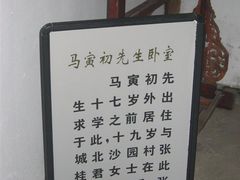 马寅初先生卧室
马寅初先
生十七岁外出
求学之前居住
于此,十九岁与
城北沙园村张
桂君女士在此